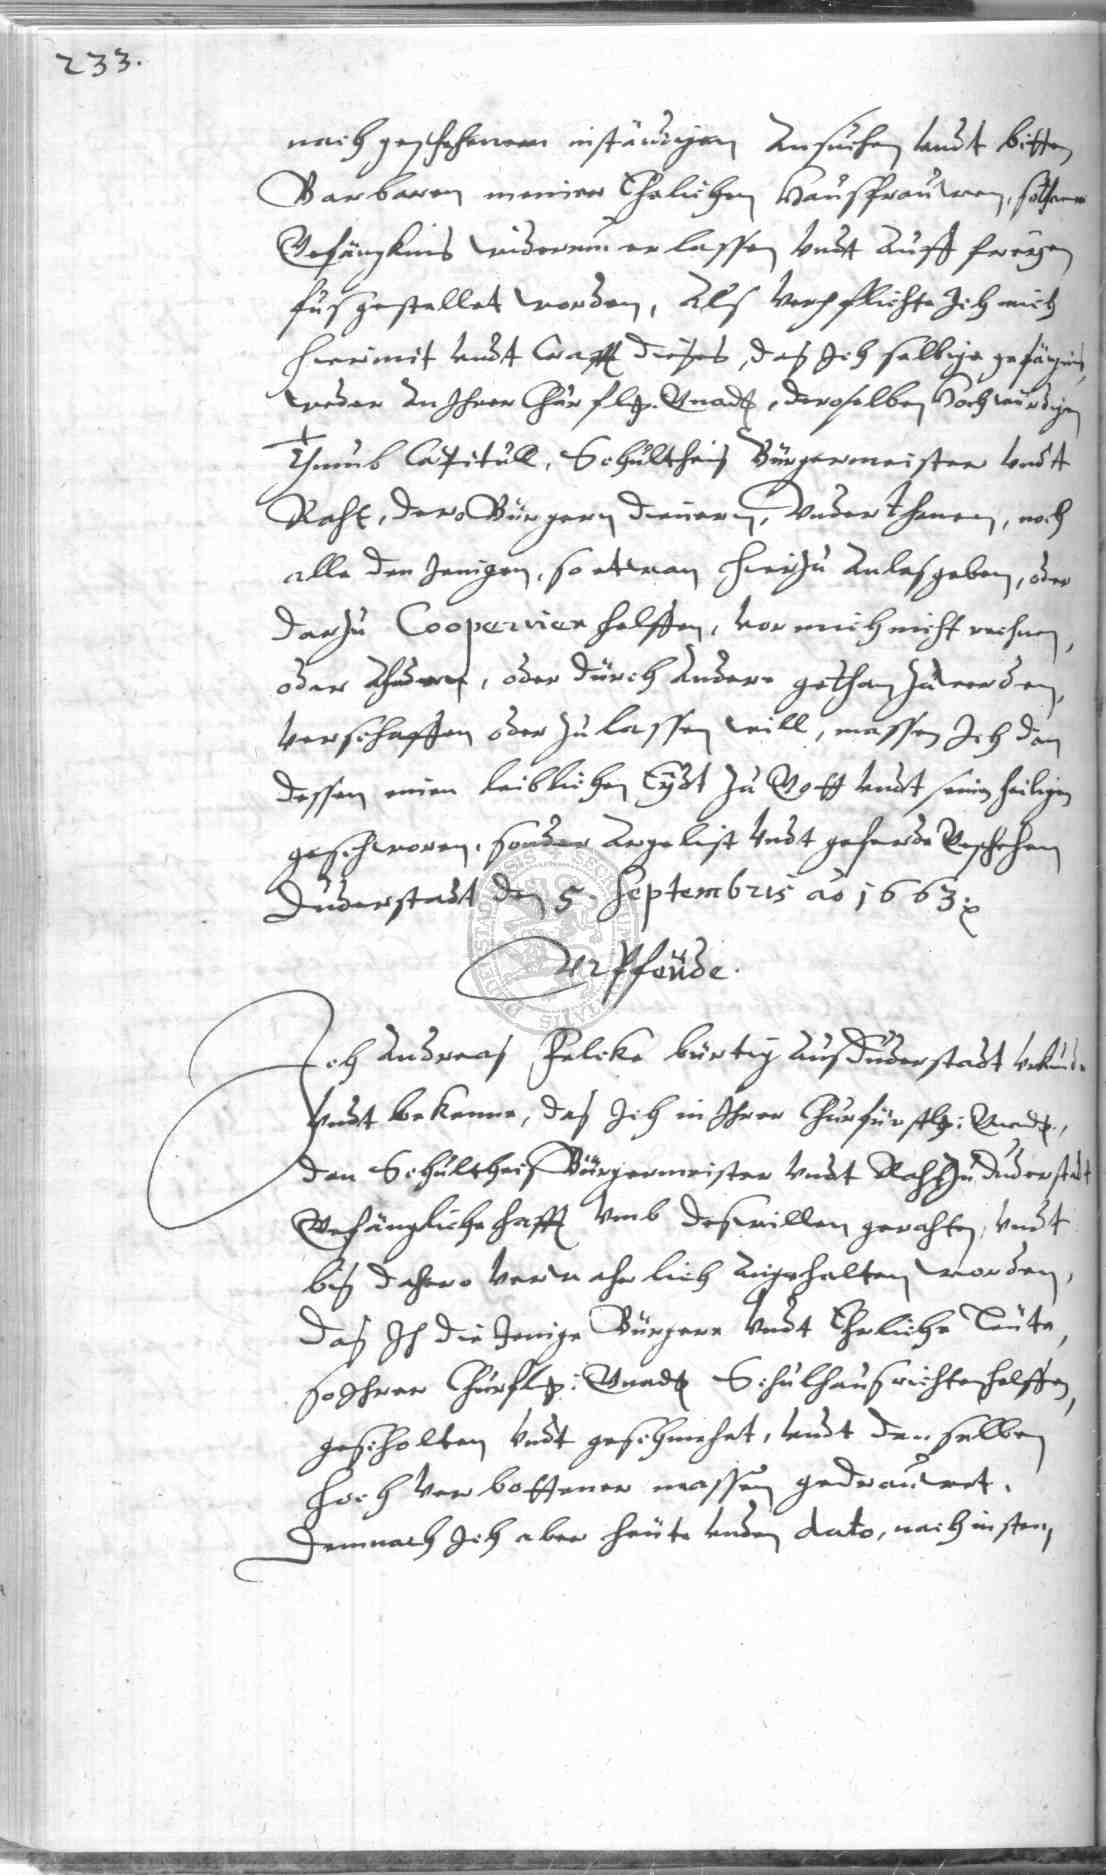 233.
nach geschehenem inständigen Ansuchen undt bitten
Barbaren meiner Ehelichen Hausfrauwen, sothaner
Gefängknis widerumb erlassen undt auff freyen
fus gestellet worden, Als verpflichte Ich mich
hiermit undt Crafft dieses, das Ich selbige gefängnis,
weder an Ihrer Churfl. Gnad, deroselben Hochwürdigen
Thumb Capitull, Schultheis Bürgermeister undt
Raht, dero Bürgern dienern, underthanen, noch
alle den Jenigen, so etwan hierzu Anlas geben, oder
darzu Cooperiren helffen, vor mich nicht rechnen,
oder ahnden, oder durch Andere gethan zu werden,
verschaffen oder zu lassen will, massen Ich dan
dessen einen leiblichen Eydt zu Gott undt sein heiligen
geschworen, sonder Argelist undt geferde Geschehen
Duderstadt den 5. Septembris ao 1663
Urpfeüde.
Ich Andreas Felcke bürtig aus Duderstadt urkunde
undt bekenne, das Ich in Ihrer Churfürstl: Gnad,
den Schultheis Bürgermeister undt Raht zu Duderstadt
Gefängliche hafft umb deswillen gerahten, undt
bis dahero verwahrlich angehalten worden,
das Ich die Jenige Bürgere undt Ehrliche Leüte,
so Ihrer Churfl: Gnad Schulhaus richten helffen,
gescholten undt geschmehet, undt denselben
hoch verbottener massen gedrauwet.
Demnach Ich aber heüte unden dato, nach insten,